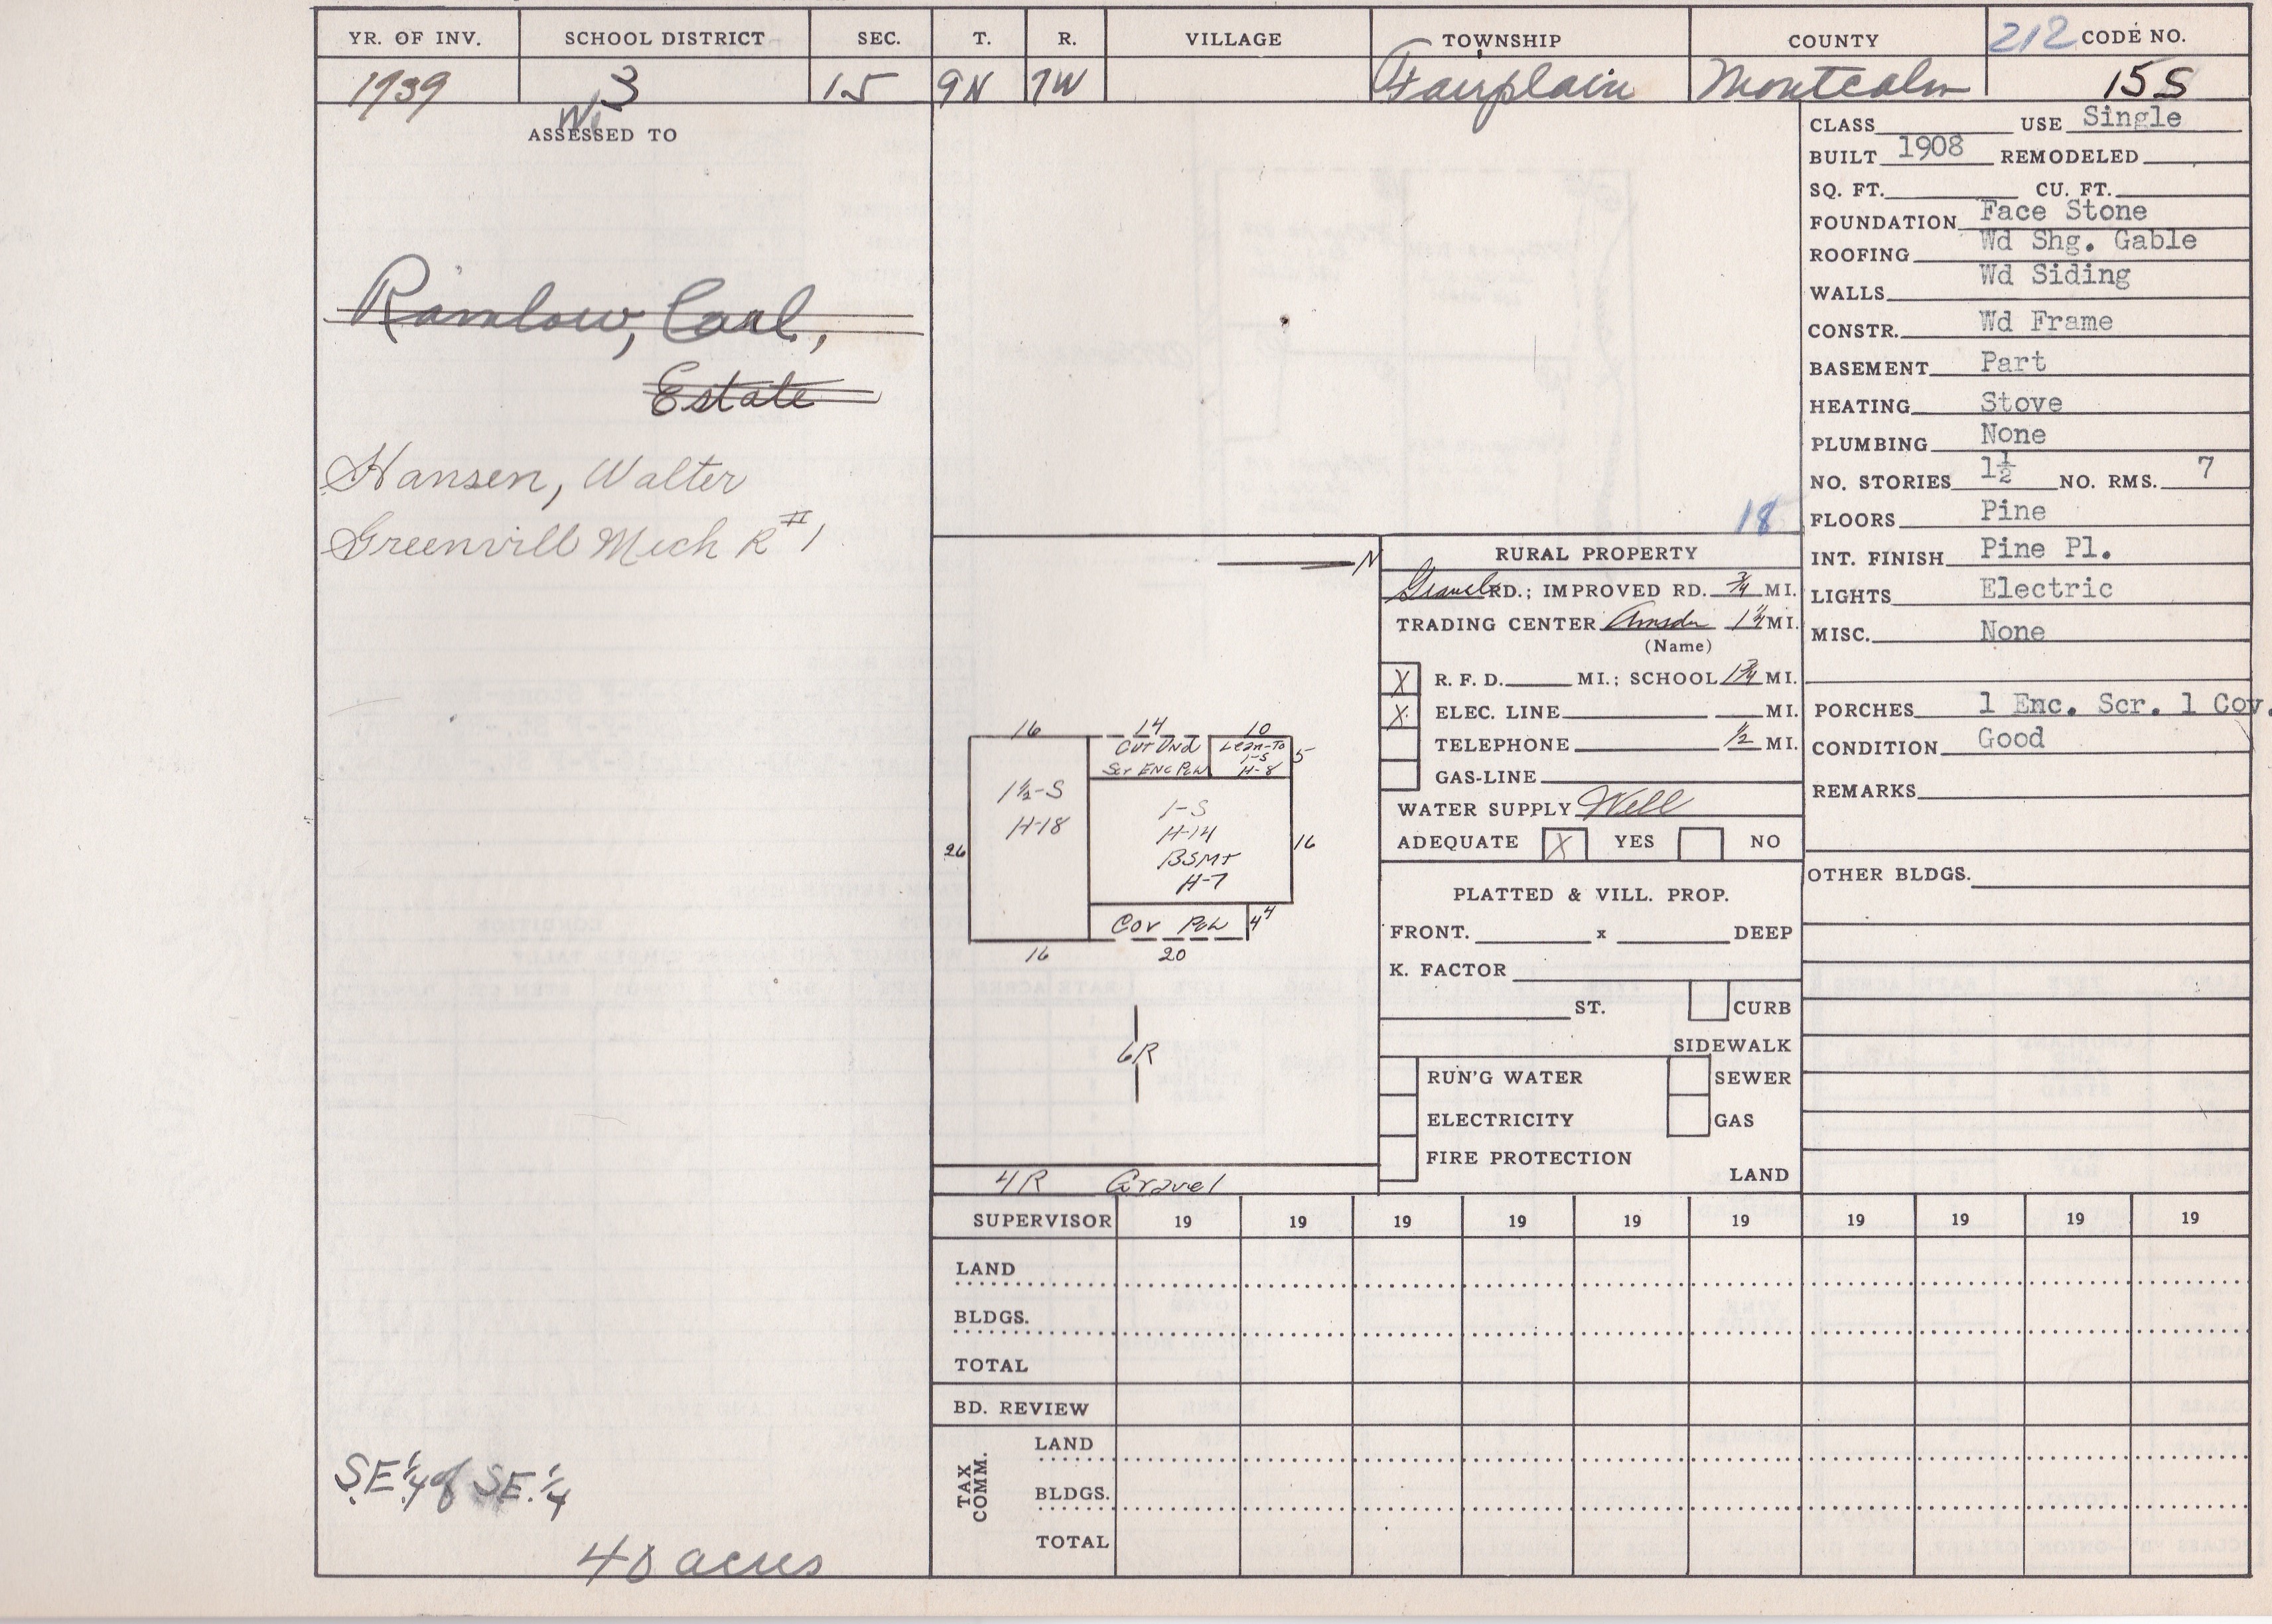 YR. OF INV. SCHOOL DISTRICT SEC. T. R. VILLAGE TOWNSHIP COUNTY 212 CODE NO.
1939 3 15 9N 7W Fairplain Montcalm 15S
W.
ASSESSED TO
Ramlow, Carl,
Estate
Hansen, Walter
Greenvill Mich R#1
SE 1/4 of SE. 1/4
40 acres
18
N
16 14 10
Cut Und
Scr Enc Pch
Lean-To
1-S
H-8
5
1½-S
H-18
26
1-S
H-14
BSMT
H-7
16
Cov Pch
4 4
16 20
6R
4R Gravel
RURAL PROPERTY
Gravel RD.; IMPROVED RD. ¾ MI.
TRADING CENTER Amsden 1¼ MI.
(Name)
X R. F. D. MI.; SCHOOL 1¾ MI.
X ELEC. LINE MI.
TELEPHONE ½ MI.
GAS-LINE
WATER SUPPLY Well
ADEQUATE X YES NO
PLATTED & VILL. PROP.
FRONT. x DEEP
K. FACTOR
ST. CURB
SIDEWALK
RUN'G WATER SEWER
ELECTRICITY GAS
FIRE PROTECTION
LAND
CLASS USE Single
BUILT 1908 REMODELED
SQ. FT. CU. FT.
FOUNDATION Face Stone
ROOFING Wd Shg. Gable
WALLS Wd Siding
CONSTR. Wd Frame
BASEMENT Part
HEATING Stove
PLUMBING None
NO. STORIES 1½ NO. RMS. 7
FLOORS Pine
INT. FINISH Pine Pl.
LIGHTS Electric
MISC. None
PORCHES 1 Enc. Scr. 1 Cov.
CONDITION Good
REMARKS
OTHER BLDGS.
SUPERVISOR 19 19 19 19 19 19 19 19 19 19
LAND
BLDGS.
TOTAL
BD. REVIEW
TAX COMM.
LAND
BLDGS.
TOTAL